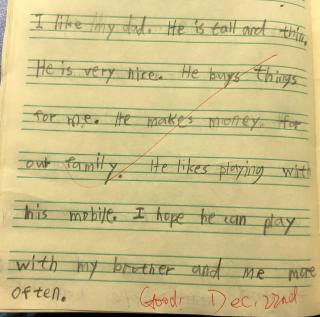 I like my dad. He is tall and thin.
He is very nice. He buys things
for me. He makes money for
our family. He likes playing with
his mobile. I hope he can play
with my brother and me more
often. Good! Dec. 22nd